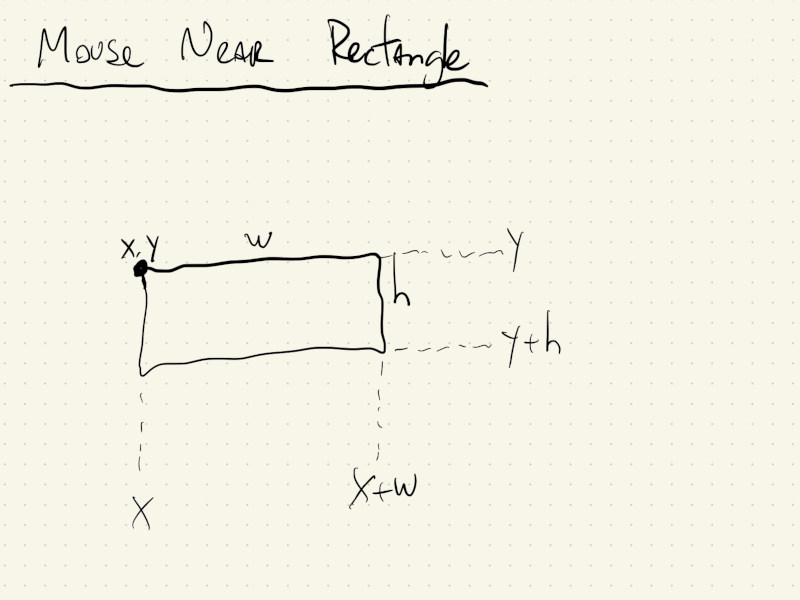 Mouse Near Rectangle
x,y
w
y
h
y+h
x+w
x